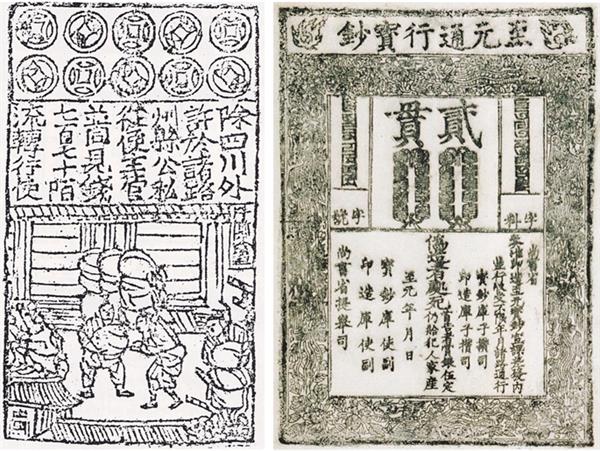 除四川外
許於諸路
州縣公私
從便主管
並同見錢
七百七十陌
流轉行使
至元通行寶鈔
貳貫
字料
字號
尚書省
奏准印造至元寶鈔宣課差役內
並行收受不限年月諸路通行
寶鈔庫子攢司
印造庫子攢司
偽造者處死首告者賞銀伍定仍給犯人家產
至元年月日
寶鈔庫使副
印造庫使副
尚書省提舉司